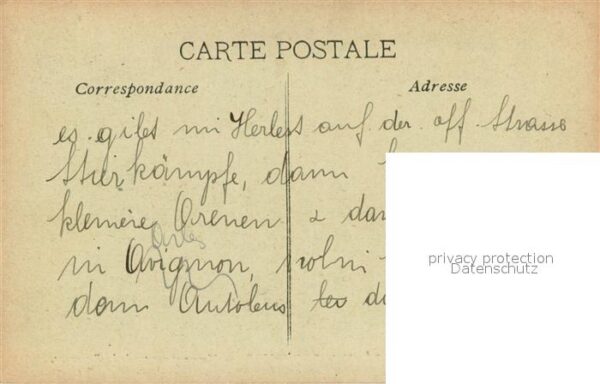 CARTE POSTALE
Correspondance
Adresse
es gibt im Herbst auf der off. Strasse
Stierkämpfe, dann
kleinere Arenen & da
Arles
in Avignon, wohin
dem Autobus du
privacy protection
Datenschutz